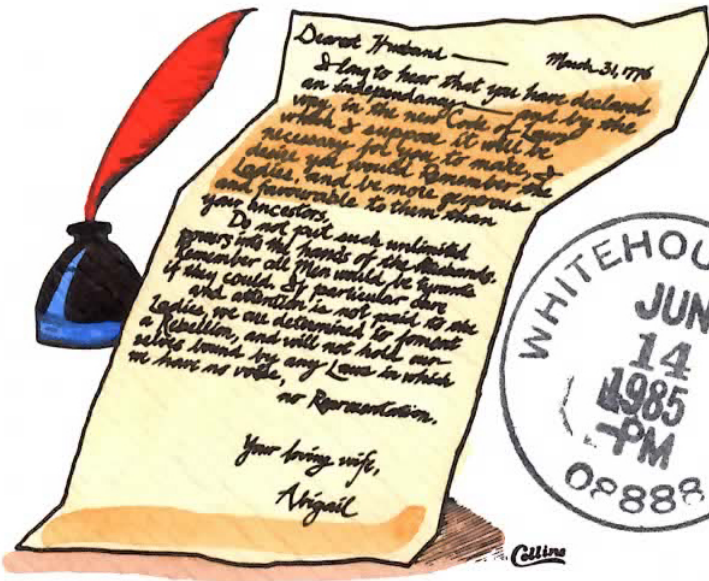 Dearest Husband — March 31, 1776
I long to hear that you have declared
an independancy — and by the
way, in the new Code of Laws
which I suppose it will be
necessary for you to make, I
desire you would Remember the
Ladies, and be more generous
and favourable to them than
your ancestors.
Do not put such unlimited
powers into the hands of the Husbands.
Remember all Men would be tyrants
if they could. If particular care
and attention is not paid to the
Ladies, we are determined to foment
a Rebellion, and will not hold our-
selves bound by any Laws in which
we have no voice,
no Representation.
Your loving wife,
Abigail
Collins
WHITEHOU
JUN
14
1985
PM
08888